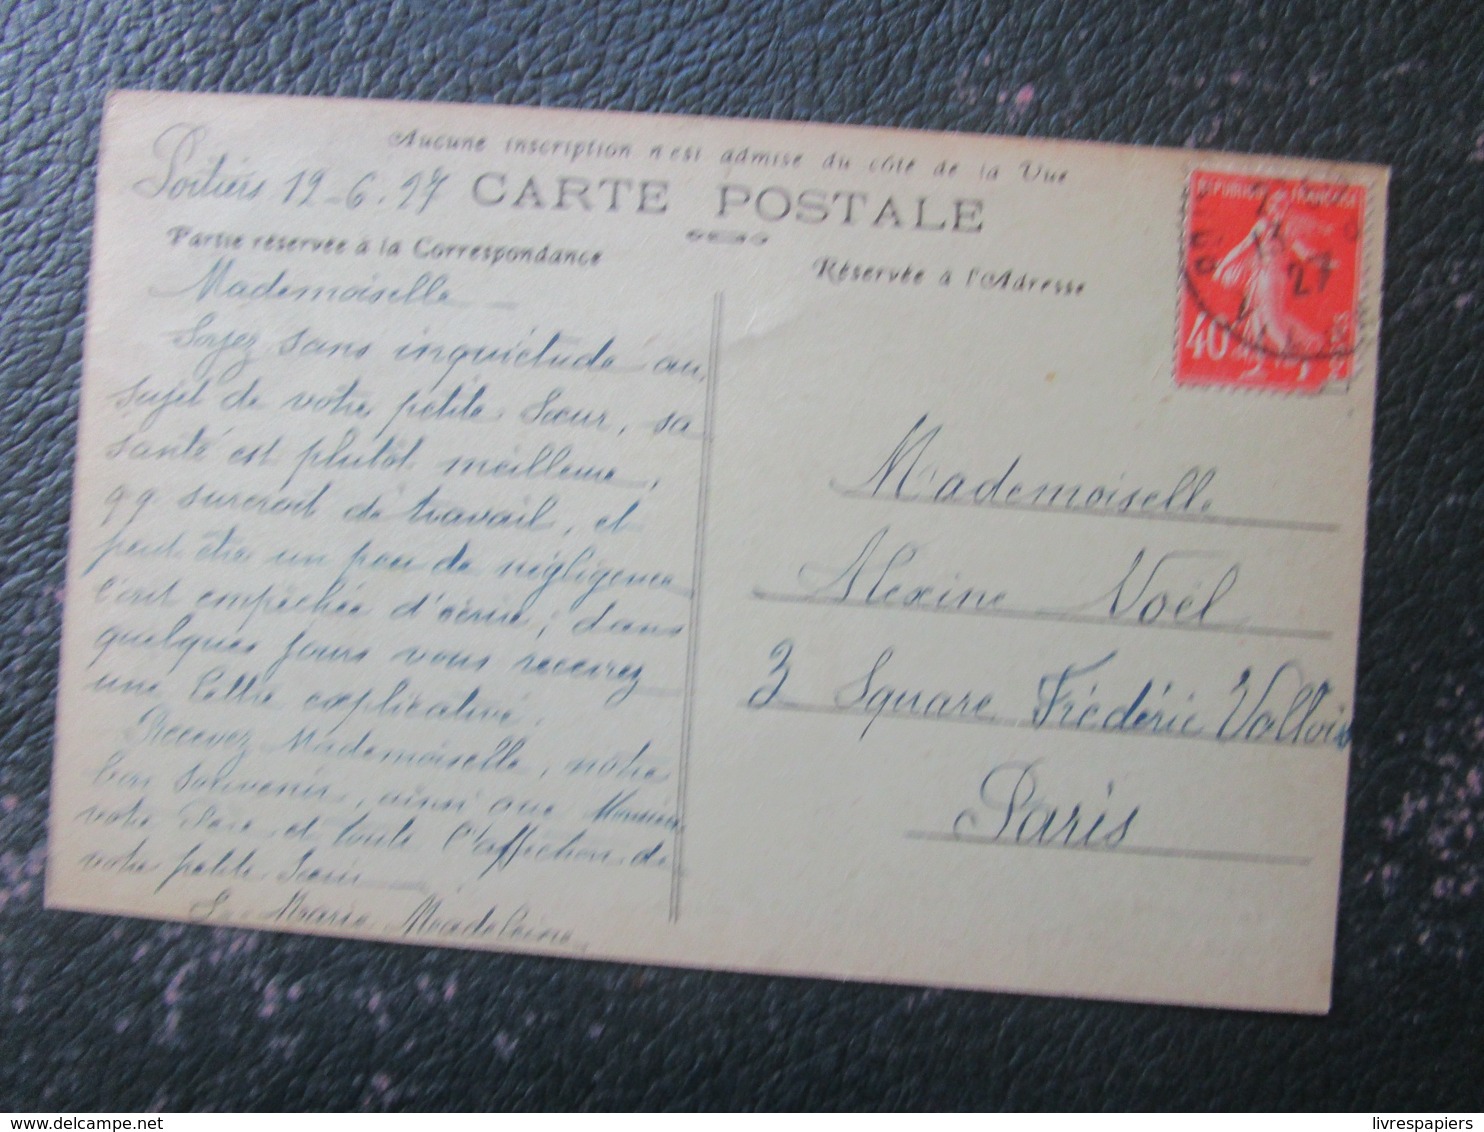 Aucune inscription n'est admise du côté de la Vue
Poitiers 12-6.27
CARTE POSTALE
Partie réservée à la Correspondance
Réservée à l'Adresse
Mademoiselle
Soyez sans inquiétude au
sujet de votre petite Sœur, sa
santé est plutôt meilleure,
qq surcroit de travail, et
peut être un peu de négligence
l'ont empêchée d'écrire; dans
quelques jours vous recevrez
une lettre explicative.
Recevez Mademoiselle, notre
bon souvenir, ainsi que Monsieur
votre Père et toute l'affection de
votre petite Sœur
S. Marie Madeleine
REPUBLIQUE FRANCAISE
27
40
POSTES
Mademoiselle
Alexine Noël
3 Square Frédéric Vallois
Paris
delcampe.net
livrespapiers